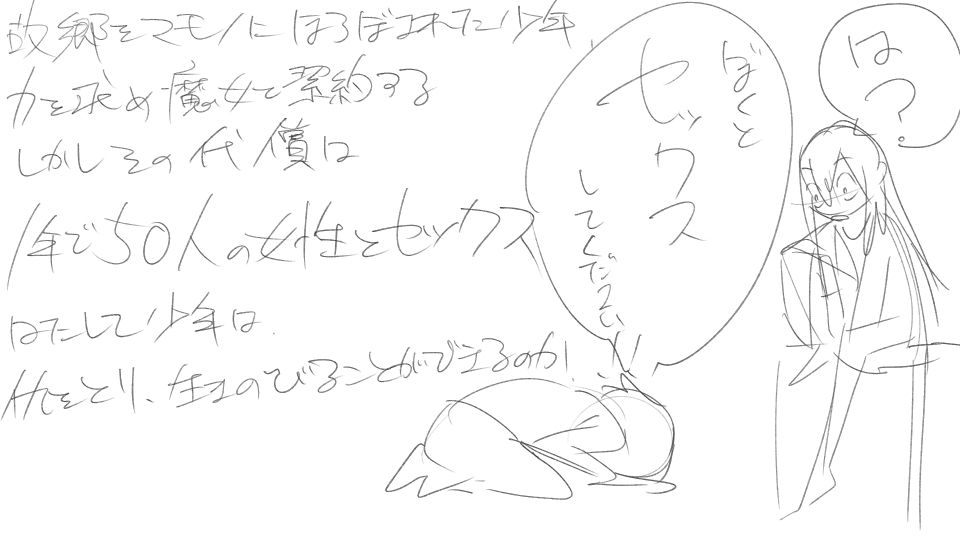 故郷をマモノにほろぼされた少年
力を求め魔女と契約する
しかしその代償は
1年で50人の女性とセックス
はたして少年は
仇をとり、生きのびることができるのか!!
は?
ぼくと
セックス
してください